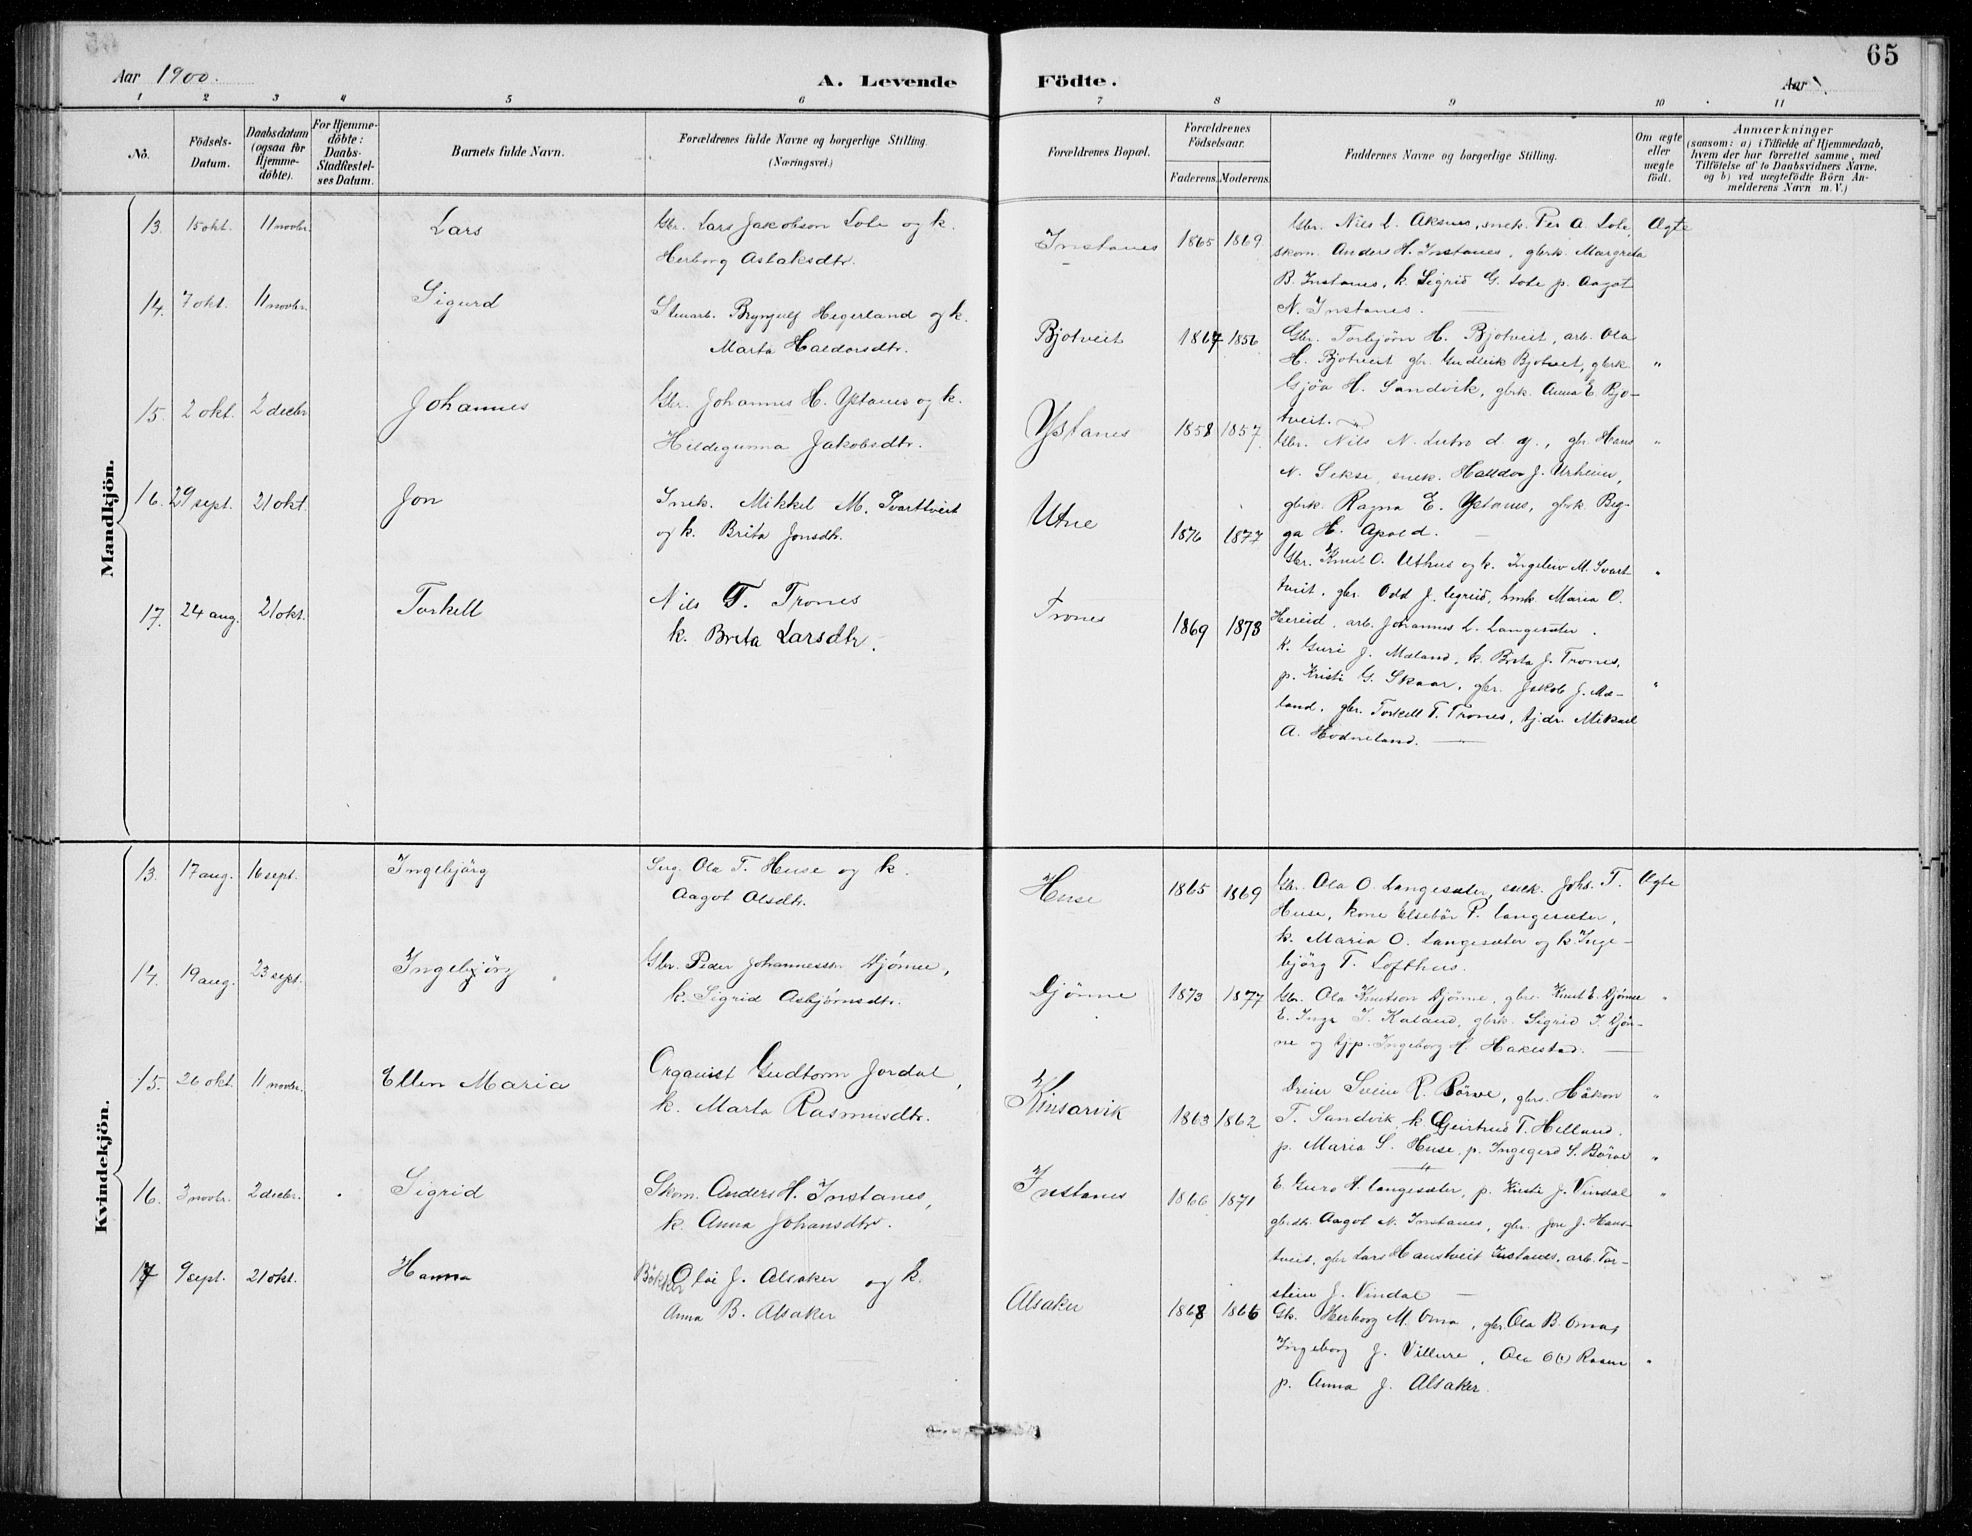 65
Aar 1900.
A. Levende Födte.
Aar
1 2 3 4 5 6 7 8 9 10 11
No.
Födsels-Datum.
Daabsdatum (ogsaa for Hjemme-döbte).
For Hjemme-döbte: Daabs-Stadfæstel-ses Datum.
Barnets fulde Navn.
Forældrenes fulde Navne og borgerlige Stilling. (Næringsvei.)
Forældrenes Bopæl.
Forældrenes Födselsaar.
Faderens. Moderens.
Faddernes Navne og borgerlige Stilling.
Om ægte eller uægte födt.
Anmærkninger
(saasom: a) i Tilfælde af Hjemmedaab,
hvem der har forrettet samme, med
Tilföielse af to Daabsvidners Navne,
og b) ved uægtefödte Börn An-
melderens Navn m. V.)
Mandkjön.
13. 15 okt. 11 novbr. Lars
Gbr. Lars Jakobson Lote og k.
Herborg Aslaksdtr.
Instanes 1865 1869
Gbr. Nils L. Aksnes, snek. Per A. Lote, Ægte
skom. Anders H. Instanes, gbrk. Margreta
B. Instanes, k. Sigrid G. Lote p. Aagot
N. Instanes.
14. 7 okt. 11 novbr. Sigurd
Stenarb. Brynjulf Hegerland og k.
Marta Haldorsdtr.
Bjotveit 1867 1856
Gbr. Torbjörn H. Bjotveit, arb. Ola
H. Bjotveit gbr. Gudleik Bjotveit, gbrk. "
Gjöa H. Sandvik, gbrk. Anna E. Bjo-
tveit.
15. 2 okt. 2 decbr. Johannes
Gbr. Johannes H. Ystanes og k.
Hildegunna Jakobsdtr.
Ystanes 1858 1857
Gbr. Nils N. Lutro d. y., gbr. Hans "
N. Sekse, snek. Halldor J. Urheim,
gbrk. Ragna E. Ystanes, gbrk. Beg-
ga H. Apold.
16. 29 sept. 21 okt. Jon
Snek. Mikkel M. Svarttveit
og k. Brita Jonsdtr.
Utne 1876 1877
Gbr. Knut O. Uthus og k. Ingeleiv M. Svart- "
tveit, gbr. Odd J. Legreid, hmk. Maria O.
Hereid, arb. Johannes L. Langesæter.
17. 24 aug. 21 okt. Torkell
Nils T. Trones
k. Brita Larsdtr.
Trones 1869 1878
k. Guri J. Mæland, k. Brita J. Trones,
p. Kristi G. Skaar, gbr. Jakob J. Mæ- "
land, gbr. Torkell T. Trones, tj.dr. Mikael
A. Hodneland.
Kvindekjön.
13. 17 aug. 16 sept. Ingebjörg
Serg. Ola T. Huse og k.
Aagot Olsdtr.
Huse 1865 1869
Gbr. Ola O. Langesæter, snek. Johs. T. Ægte
Huse, kone Elsebör P. Langesæter,
k. Maria O. Langesæter og k. Inge-
björg T. Lofthus.
14. 19 aug. 23 sept. Ingebjörg
Gbr. Peder Johannesson Djönne,
k. Sigrid Asbjørnsdtr.
Djönne 1873 1877
Gbr. Ola Knutson Djönne, gbrs. Knut E. Djönne "
E. Inga I. Kaland, gbrk. Sigrid I. Djön-
ne og tjp. Ingeborg H. Hakestad.
15. 26 okt. 11 novbr. Ellen Maria
Organist Gudtorm Jordal,
k. Marta Rasmusdtr.
Kinsarvik 1863 1862
Dreier Svein R. Börve, gbrs. Håkon "
T. Sandvik, k. Geirtrud T. Helland,
p. Maria S. Huse, p. Ingegerd S. Börve "
16. 3 novbr. 2 decbr. Sigrid
Skom. Anders H. Instanes,
k. Anna Johansdtr.
Instanes 1866 1871
E. Guro H. Langesæter, p. Kristi J. Vindal "
gbrdtr. Aagot N. Instanes, gbr. Jon J. Haus-
tveit, gbr. Lars Haustveit Instanes, arb. Tor-
stein J. Vindal
17 9 sept. 21 okt. Hanna
Bökker Olai J. Alsaker og k.
Anna B. Alsaker
Alsaker 1868 1866
Gk. Herborg M. Oma, gbr. Ola B. Oma,
Ingeborg J. Villure, Ola "
p. Anna J. Alsaker.